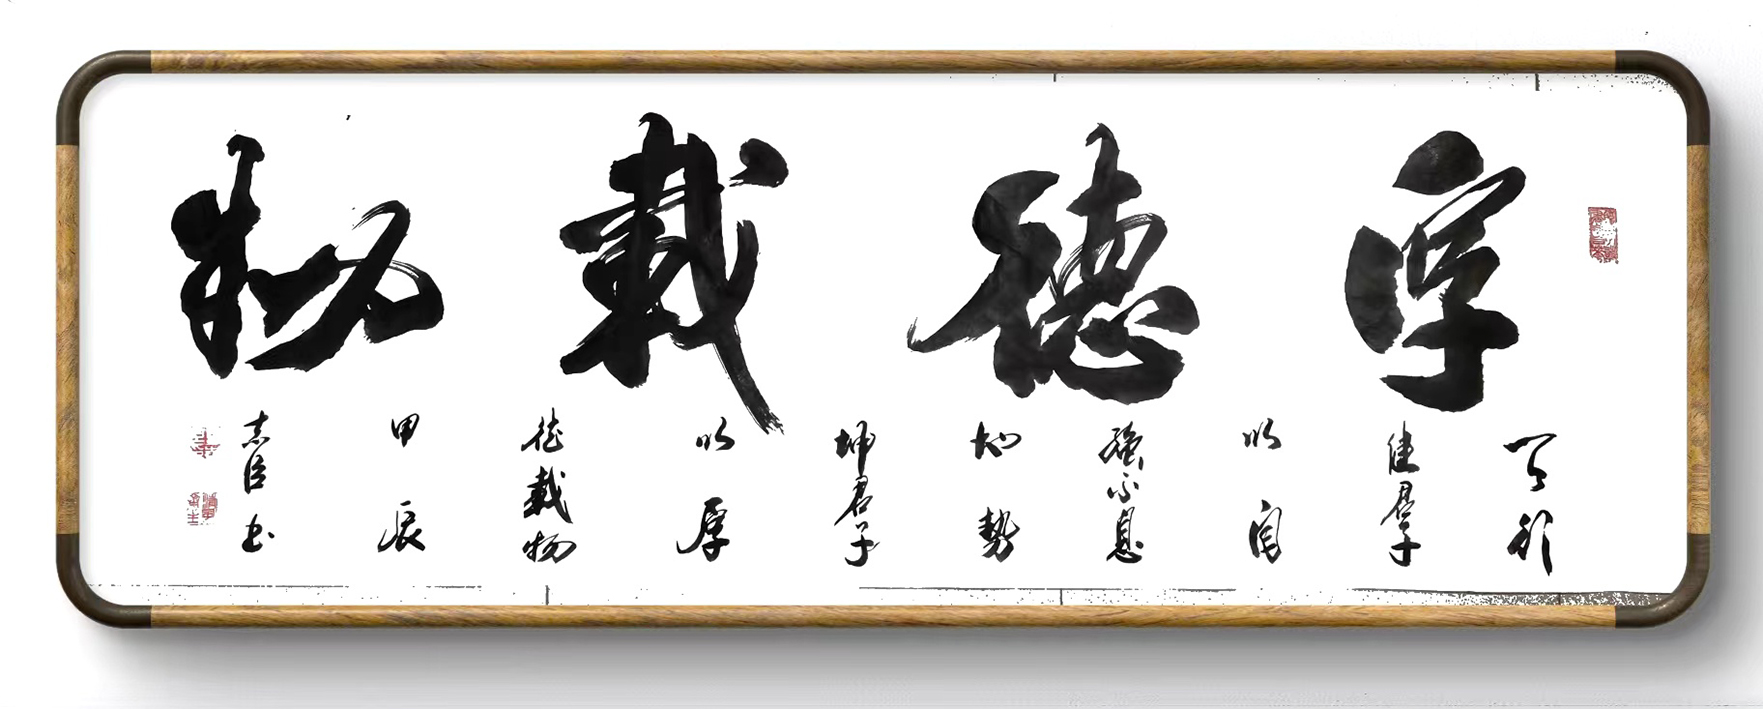 厚德載物
天行
健君子
以自
強不息
地勢
坤君子
以厚
德載物
甲辰
志臣书